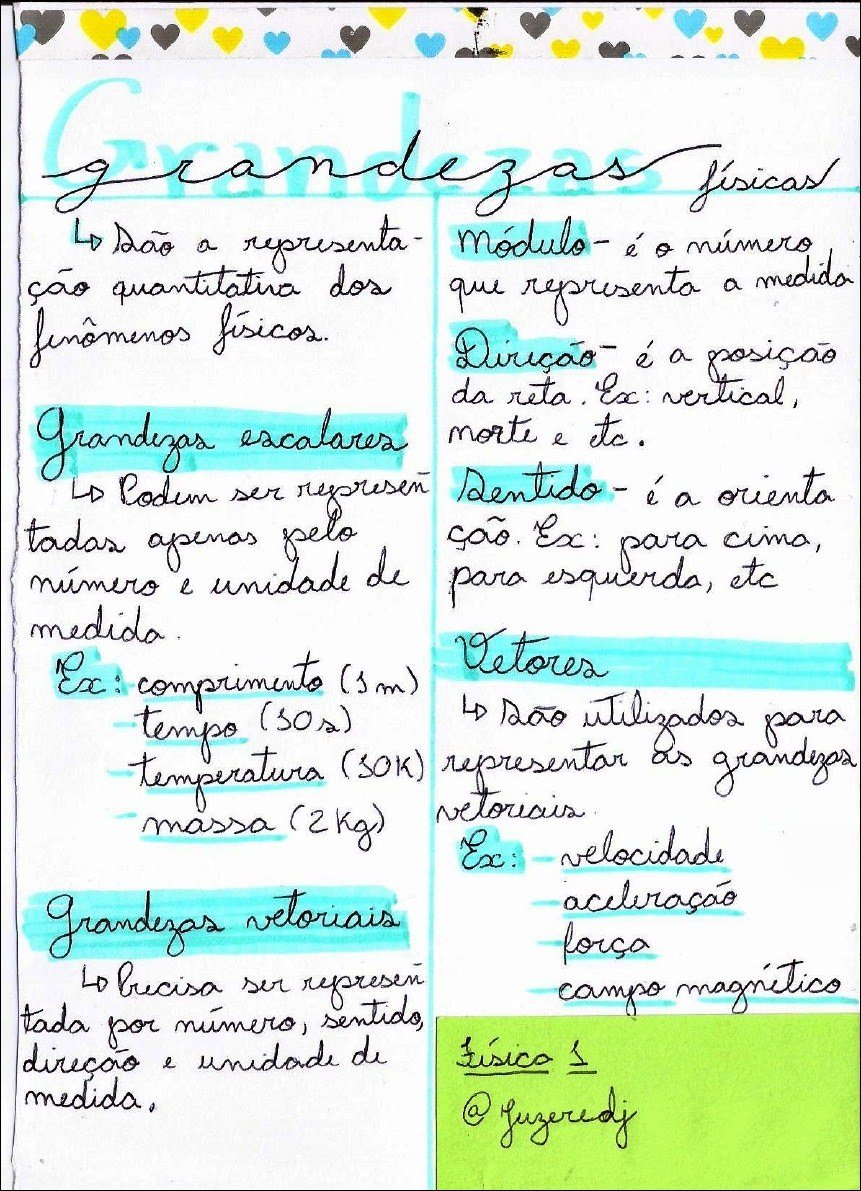 Grandezas
grandezas físicas
↳ São a representa-
ção quantitativa dos
fenômenos físicos.
Grandezas escalares
↳ Podem ser represen
tadas apenas pelo
número e unidade de
medida.
Ex: comprimento (1m)
- tempo (10s)
- temperatura (10K)
- massa (2Kg)
Grandezas vetoriais
↳ Precisa ser represen
tada por número, sentido,
direção e unidade de
medida.
Módulo - é o número
que representa a medida
Direção - é a posição
da reta. Ex: vertical,
norte e etc.
Sentido - é a orienta
ção. Ex: para cima,
para esquerda, etc
Vetores
↳ São utilizados para
representar as grandezas
vetoriais.
Ex: - velocidade
- aceleração
- força
- campo magnético
Física 1